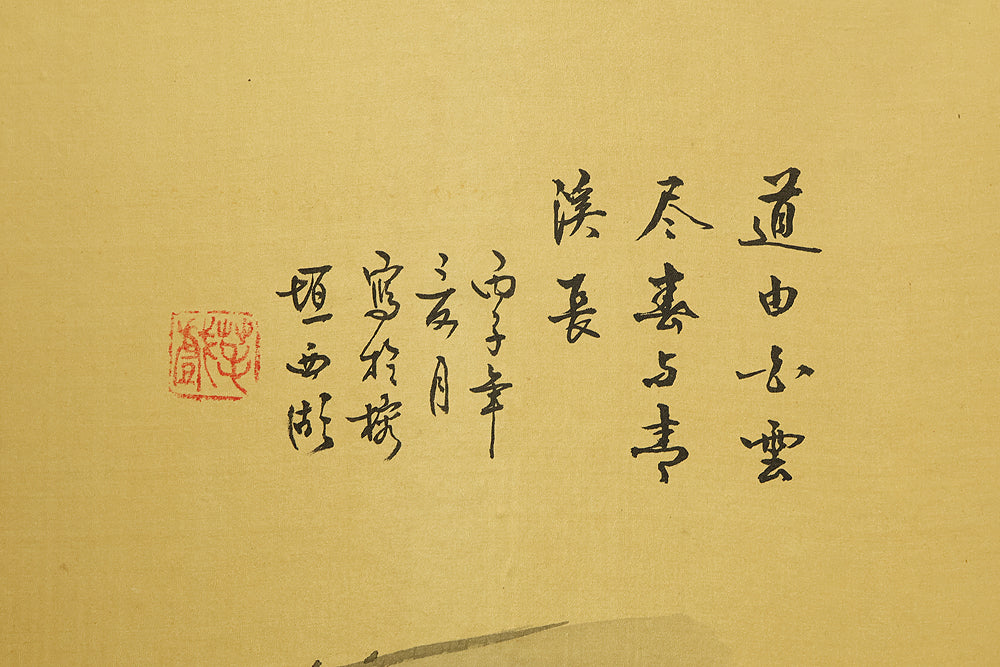 道由白雲
尽春与青
溪長
丙子年
夏月
寫於榕
垣西湖